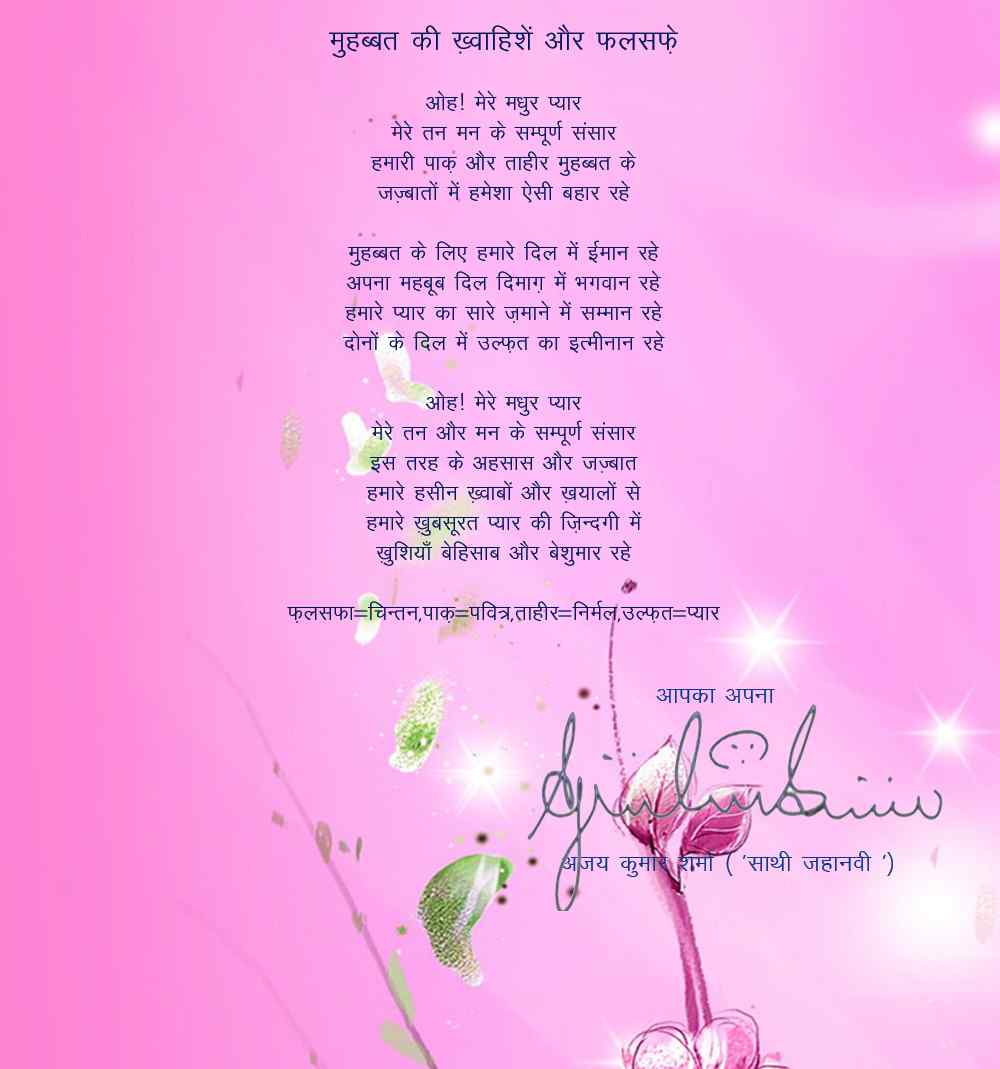 मुहब्बत की ख़्वाहिशें और फलसफ़े
ओह! मेरे मधुर प्यार
मेरे तन मन के सम्पूर्ण संसार
हमारी पाक़ और ताहीर मुहब्बत के
जज़्बातों में हमेशा ऐसी बहार रहे
मुहब्बत के लिए हमारे दिल में ईमान रहे
अपना महबूब दिल दिमाग़ में भगवान रहे
हमारे प्यार का सारे ज़माने में सम्मान रहे
दोनों के दिल में उल्फ़त का इत्मीनान रहे
ओह! मेरे मधुर प्यार
मेरे तन और मन के सम्पूर्ण संसार
इस तरह के अहसास और जज़्बात
हमारे हसीन ख़्वाबों और ख़यालों से
हमारे ख़ुबसूरत प्यार की ज़िन्दगी में
ख़ुशियाँ बेहिसाब और बेशुमार रहे
फ़लसफा=चिन्तन,पाक़=पवित्र,ताहीर=निर्मल,उल्फ़त=प्यार
आपका अपना
अजय कुमार शर्मा ( 'साथी जहानवी ')